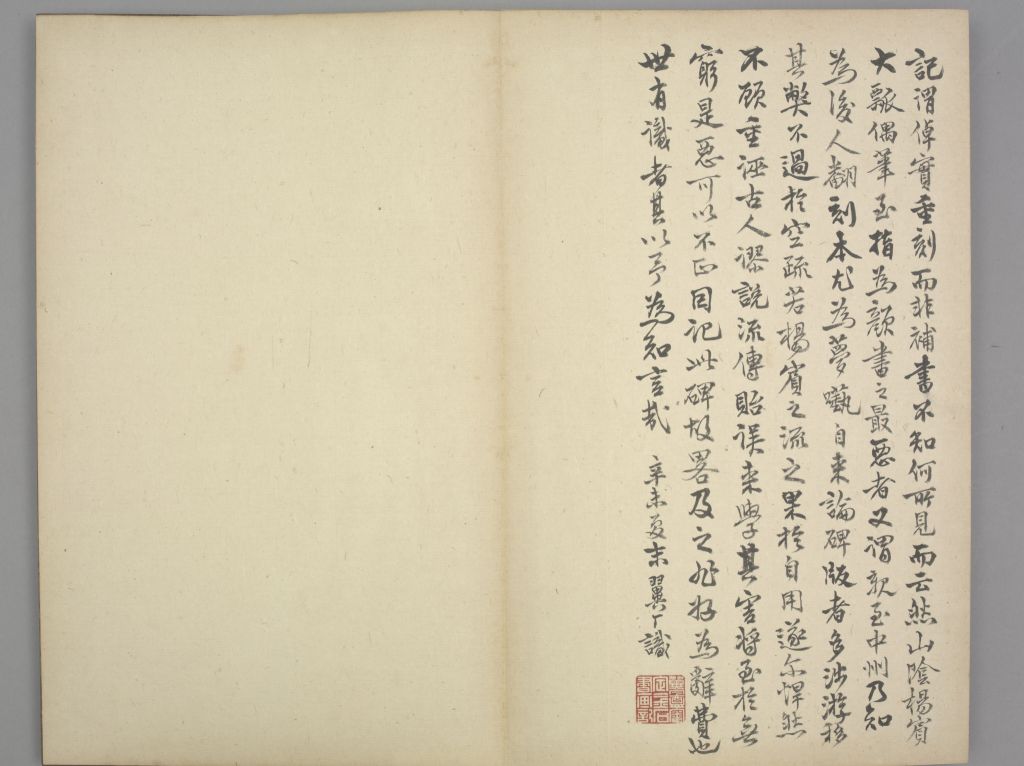 記謂倬實重刻而非補書不知何所見而云然山陰楊賓
大瓢偶筆至指為顏書之最惡者又謂親至中州乃知
為後人翻刻本尤為夢囈自來論碑版者多涉游移
其弊不過於空疏若楊賓之流之果於自用遂尓悍然
不顧重誣古人謬說流傳貽誤來學其害將至於無
窮是惡可以不正因記此碑故畧及之非好為辭費也
世有識者其以予為知言哉
辛未夏末翼厂識